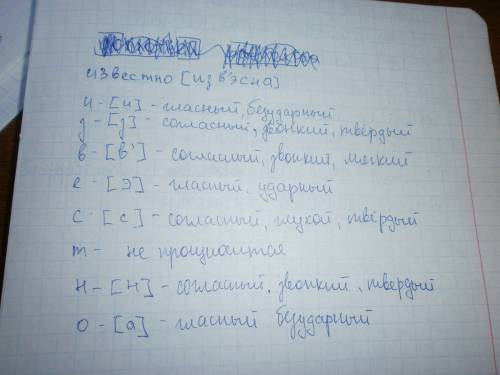 известно [из в'эсна]
и - [и] - гласный, безударный
з - [з] - согласный, звонкий, твёрдый
в - [в'] - согласный, звонкий, мягкий
е - [э] - гласный, ударный
с - [с] - согласный, глухой, твёрдый
т - не
н - [н] - согласный, звонкий, твердый
о - [а] - гласный безударный